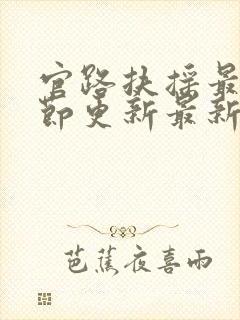 官路扶摇最
节更新最新
芭蕉夜喜雨